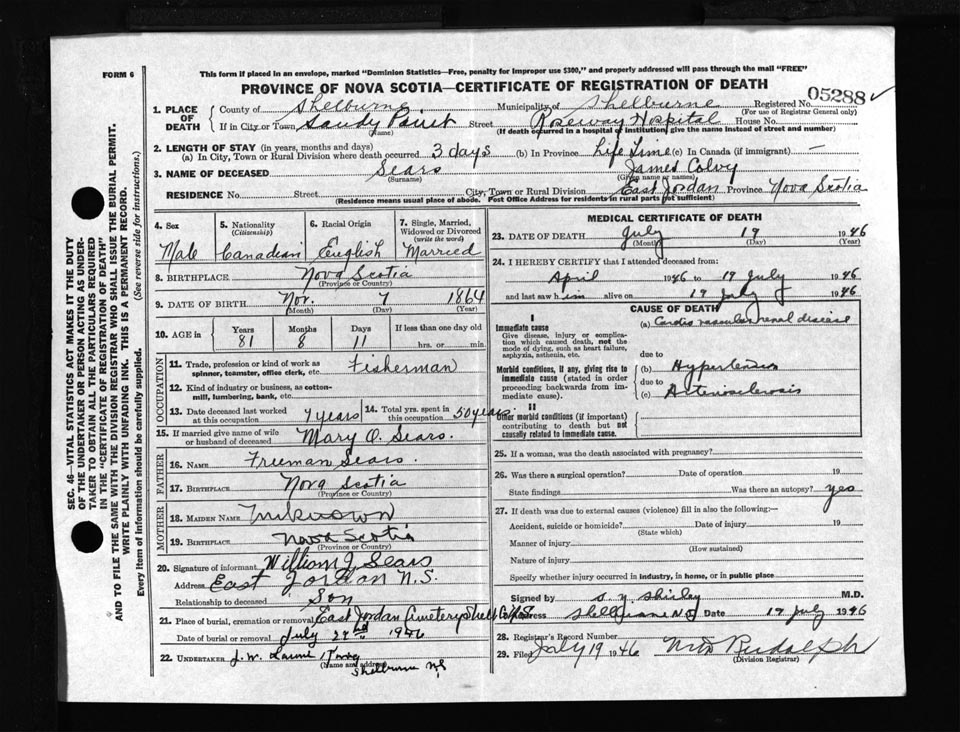 FORM 6
This form if placed in an envelope, marked "Dominion Statistics—Free, penalty for improper use $300," and properly addressed will pass through the mail "FREE"
PROVINCE OF NOVA SCOTIA—CERTIFICATE OF REGISTRATION OF DEATH
05288
1. PLACE OF DEATH County of Shelburne Municipality of Shelburne Registered No.
(For use of Registrar General only)
If in City or Town Sandy Point Street Roseway Hospital House No.
(Name) (If death occurred in a hospital or institution, give the name instead of street and number)
2. LENGTH OF STAY (in years, months and days)
(a) In City, Town or Rural Division where death occurred 3 days (b) In Province Life Time (c) In Canada (if immigrant) —
3. NAME OF DECEASED Sears James
(Surname) (Given name or names)
RESIDENCE No. Street City, Town or Rural Division East Jordan Province Nova Scotia
(Residence means usual place of abode. Post Office Address for residents in rural parts not sufficient)
4. Sex Male
5. Nationality (Citizenship) Canadian
6. Racial Origin English
7. Single, Married, Widowed or Divorced (write the word) Married
8. BIRTHPLACE Nova Scotia
(Province or Country)
9. DATE OF BIRTH Nov. 7 1864
(Month) (Day) (Year)
10. AGE in Years 81 Months 8 Days 11 If less than one day old hrs. or min.
OCCUPATION
11. Trade, profession or kind of work as spinner, teamster, office clerk, etc. Fisherman
12. Kind of industry or business, as cotton-mill, lumbering, bank, etc.
13. Date deceased last worked at this occupation 7 years
14. Total yrs. spent in this occupation 50 years.
15. If married give name of wife or husband of deceased Mary O. Sears.
FATHER
16. NAME Freeman Sears.
17. BIRTHPLACE Nova Scotia
(Province or Country)
MOTHER
18. MAIDEN NAME Unknown
19. BIRTHPLACE Nova Scotia
(Province or Country)
20. Signature of informant William J. Sears
Address East Jordan N.S.
Relationship to deceased Son
21. Place of burial, cremation or removal East Jordan Cemetery
Date of burial or removal July
22. UNDERTAKER J. W.
(Name and address) Shelburne NS
MEDICAL CERTIFICATE OF DEATH
23. DATE OF DEATH July 19 1946
(Month) (Day) (Year)
24. I HEREBY CERTIFY that I attended deceased from:
April 1946 to 19 July 1946
and last saw him alive on 19 July 1946
CAUSE OF DEATH
I
Immediate cause
Give disease, injury or complication which caused death, not the mode of dying, such as heart failure, asphyxia, asthenia, etc.
(a) Cardio vascular renal disease
due to
Morbid conditions, if any, giving rise to immediate cause (stated in order proceeding backwards from immediate cause).
(b) Hypertension
due to
(c) Arteriosclerosis
II
Other morbid conditions (if important) contributing to death but not causally related to immediate cause.
25. If a woman, was the death associated with pregnancy?
26. Was there a surgical operation? Date of operation 19
State findings Was there an autopsy? yes
27. If death was due to external causes (violence) fill in also the following:—
Accident, suicide or homicide? Date of injury 19
(State which)
Manner of injury
(How sustained)
Nature of injury
Specify whether injury occurred in industry, in home, or in public place
Signed by Shirley M.D.
Address Shelburne N.S. Date 19 July 1946
28. Registrar's Record Number
29. Filed July 19 1946 Rudolph
(Division Registrar)
SEC. 46—VITAL STATISTICS ACT MAKES IT THE DUTY
OF THE UNDERTAKER OR PERSON ACTING AS UNDERTAKER TO OBTAIN ALL THE PARTICULARS REQUIRED
IN THE "CERTIFICATE OF REGISTRATION OF DEATH"
AND TO FILE THE SAME WITH THE DIVISION REGISTRAR WHO SHALL ISSUE THE BURIAL PERMIT.
WRITE PLAINLY WITH UNFADING INK. THIS IS A PERMANENT RECORD.
Every item of information should be carefully supplied. (See reverse side for instructions.)